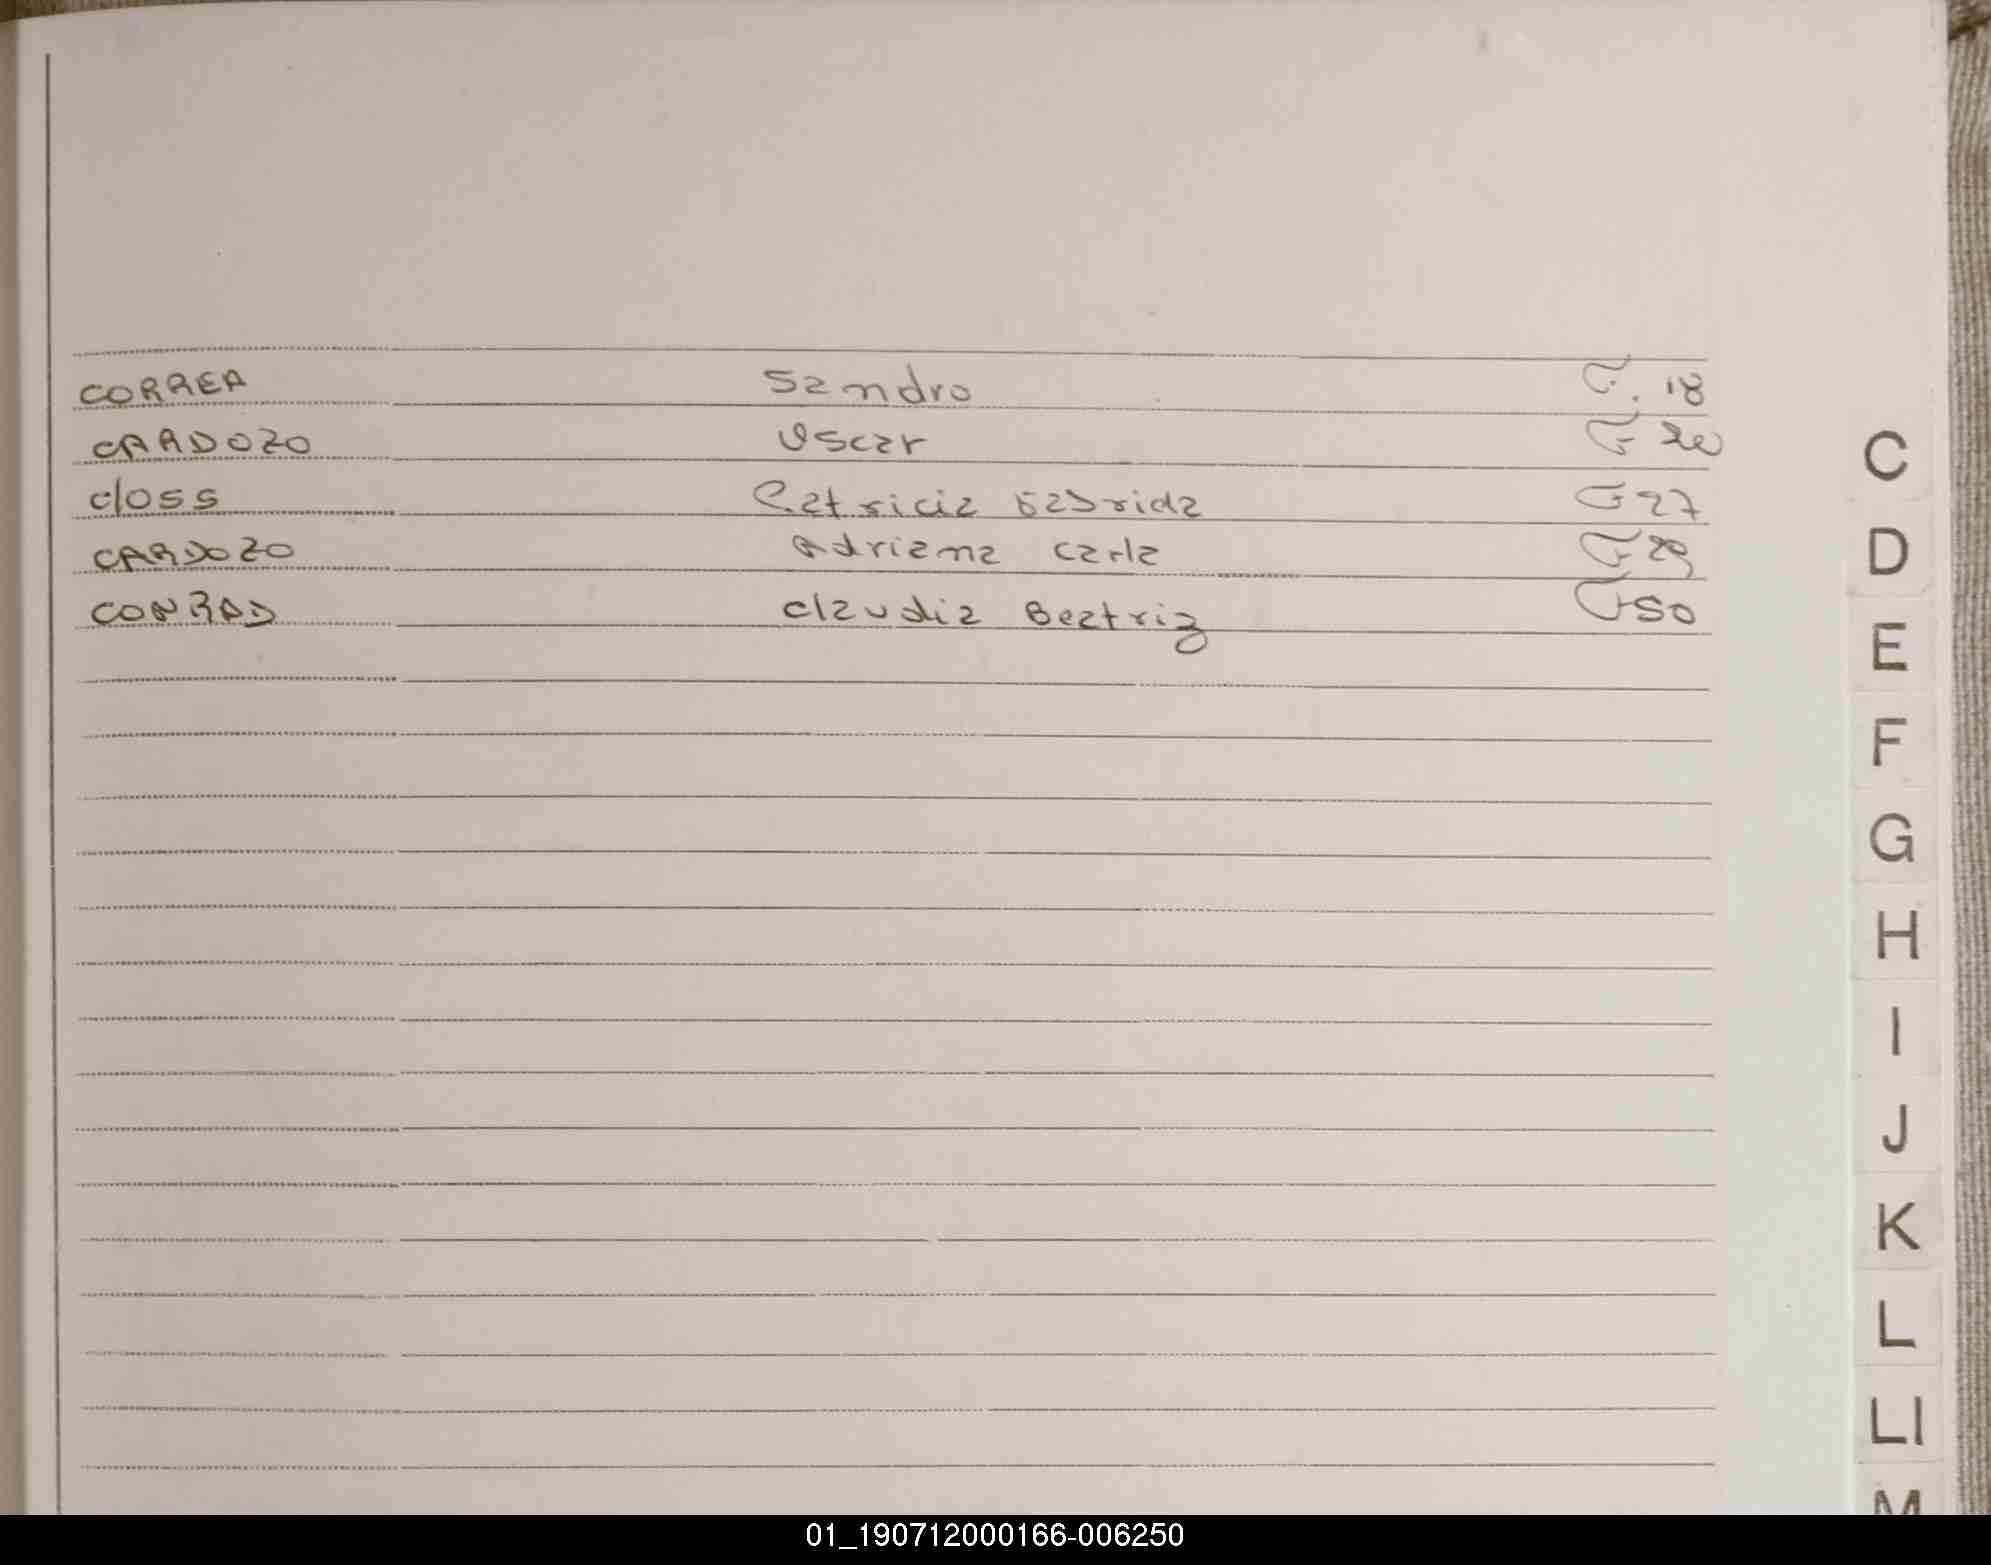 CORREA Sandro F. 18
CARDOZO Oscar F 20
Closs Patricia Gabriela F 27
CARDOZO Adriana Carla F 29
CONRAD Claudia Beatriz F 50
C
D
E
F
G
H
I
J
K
L
Ll
M
01_190712000166-006250